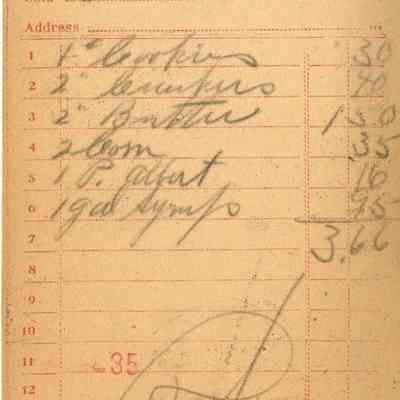 Address
1 1# Cookies 30
2 2# Crackers 40
3 2# Butter 1 50
4 2 Corn 35
5 1 P. Albert 16
6 1 gal Syrup 95
7 3.66
8
9
10
11 35
12